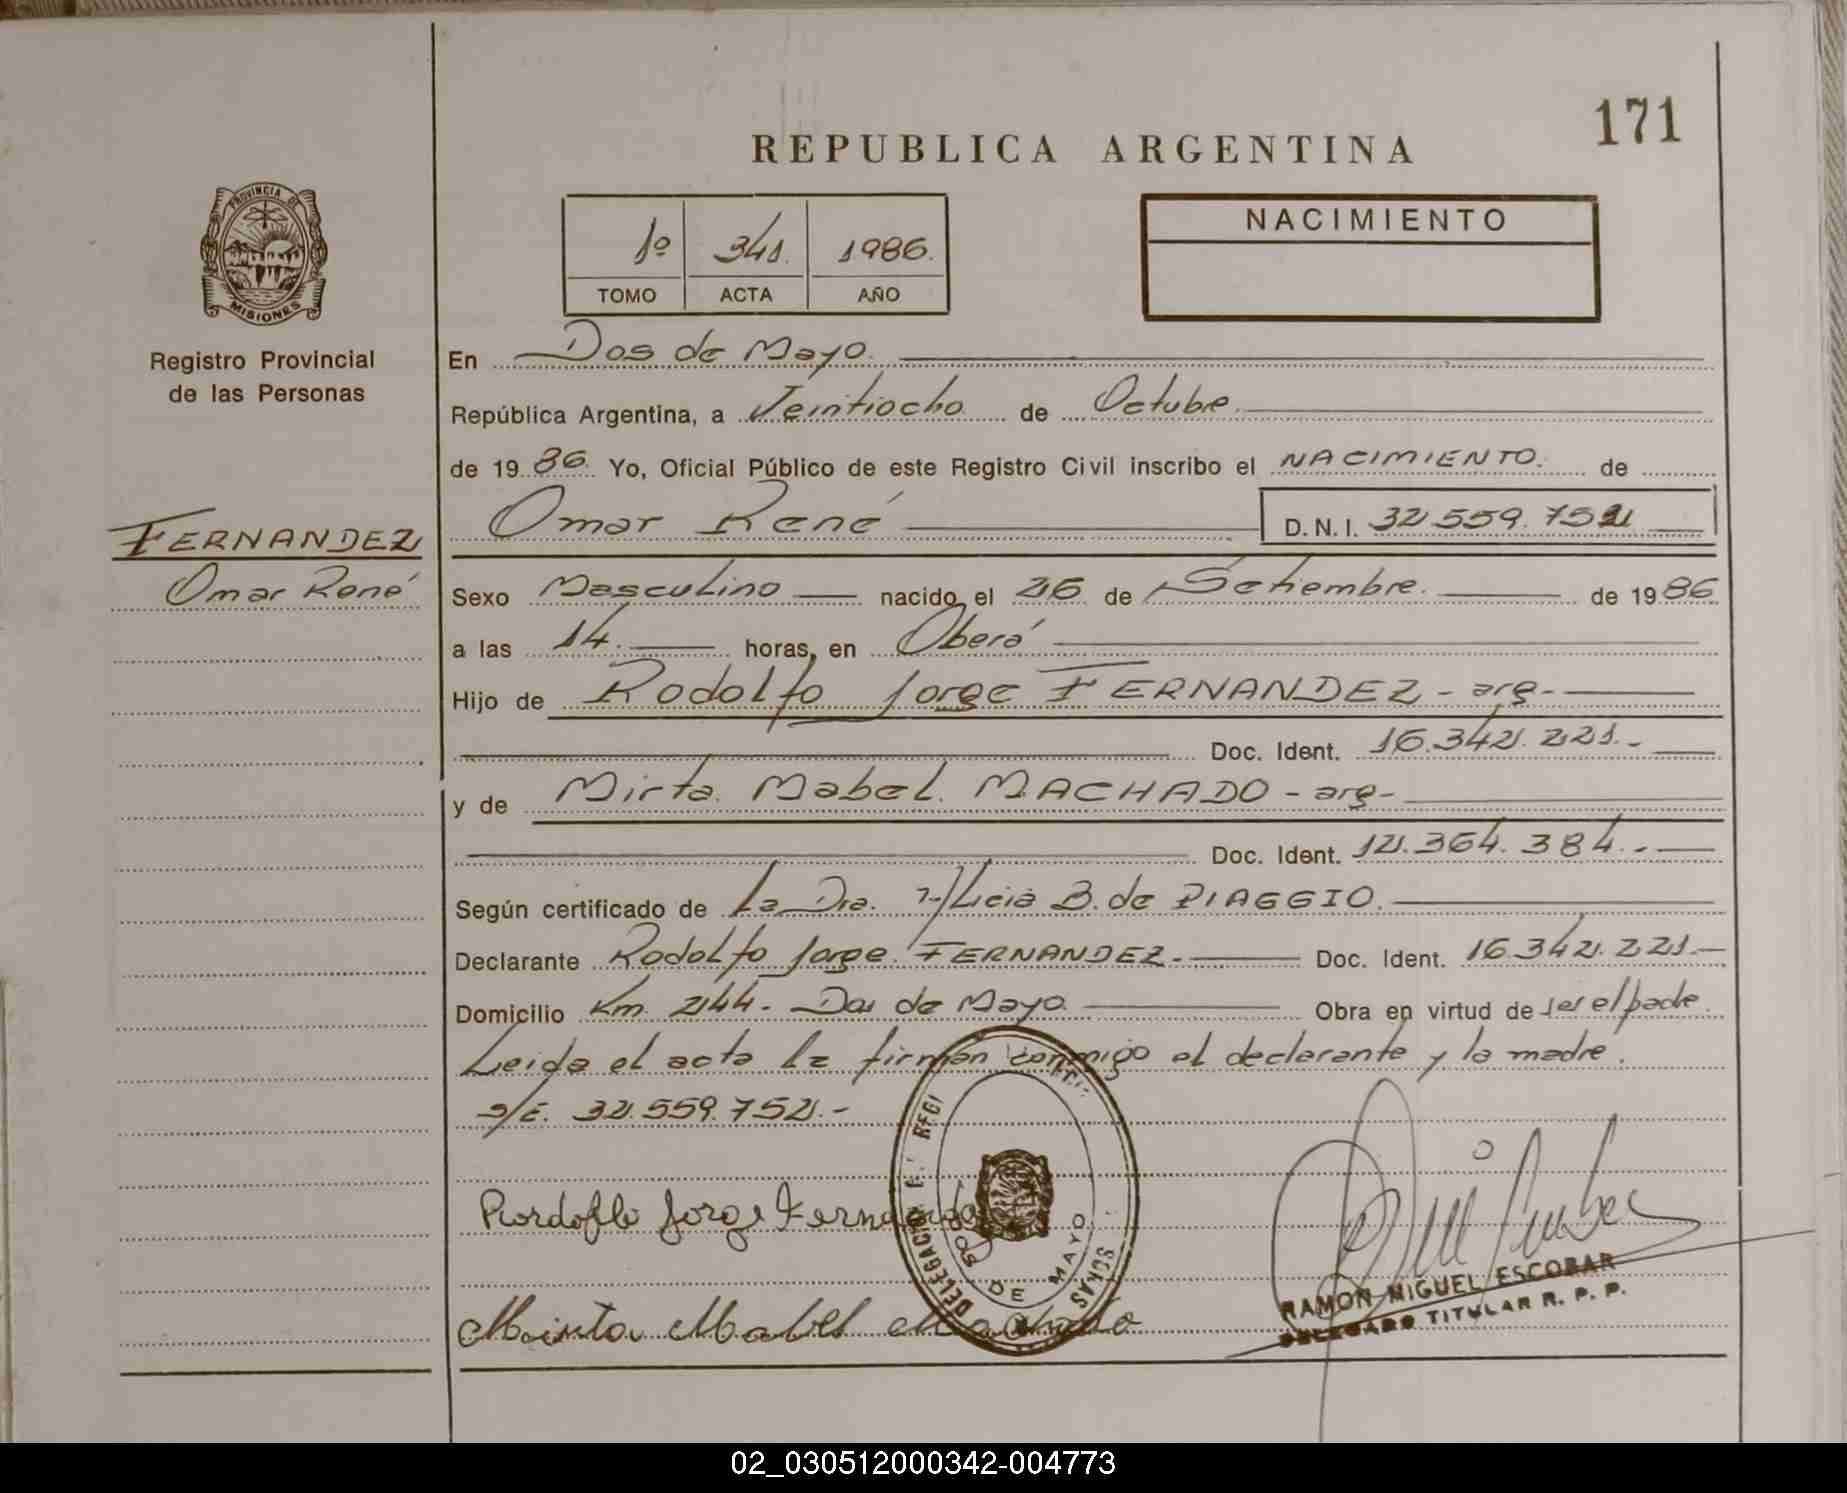 171
REPUBLICA ARGENTINA
PROVINCIA DE
MISIONES
Registro Provincial
de las Personas
1º 341. 1986.
TOMO ACTA AÑO
NACIMIENTO
En Dos de Mayo.
República Argentina, a Veintiocho de Octubre.
de 1986. Yo, Oficial Público de este Registro Civil inscribo el NACIMIENTO. de
Omar René D.N.I. 32.559.752
FERNANDEZ
Omar René
Sexo Masculino nacido el 26 de Setiembre. de 1986
a las 14. horas, en Oberá
Hijo de Rodolfo Jorge FERNANDEZ - arg-
Doc. Ident. 16.342.221.-
y de Mirta Mabel. MACHADO - arg-
Doc. Ident. 12.364.384.-
Según certificado de La Dra. Alicia B. de PIAGGIO.
Declarante Rodolfo Jorge FERNANDEZ.- Doc. Ident. 16.342.221.-
Domicilio Km. 244- Dos de Mayo. Obra en virtud de ser el padre.
Leida el acta la firman conmigo el declarante y la madre.
s/E. 32.559.752.-
Rordoflo Jorge Fernandez
DOS DE MAYO
Mirta Mabel Machado
RAMON MIGUEL ESCOBAR
DELEGADO TITULAR R. P. P.
02_030512000342-004773